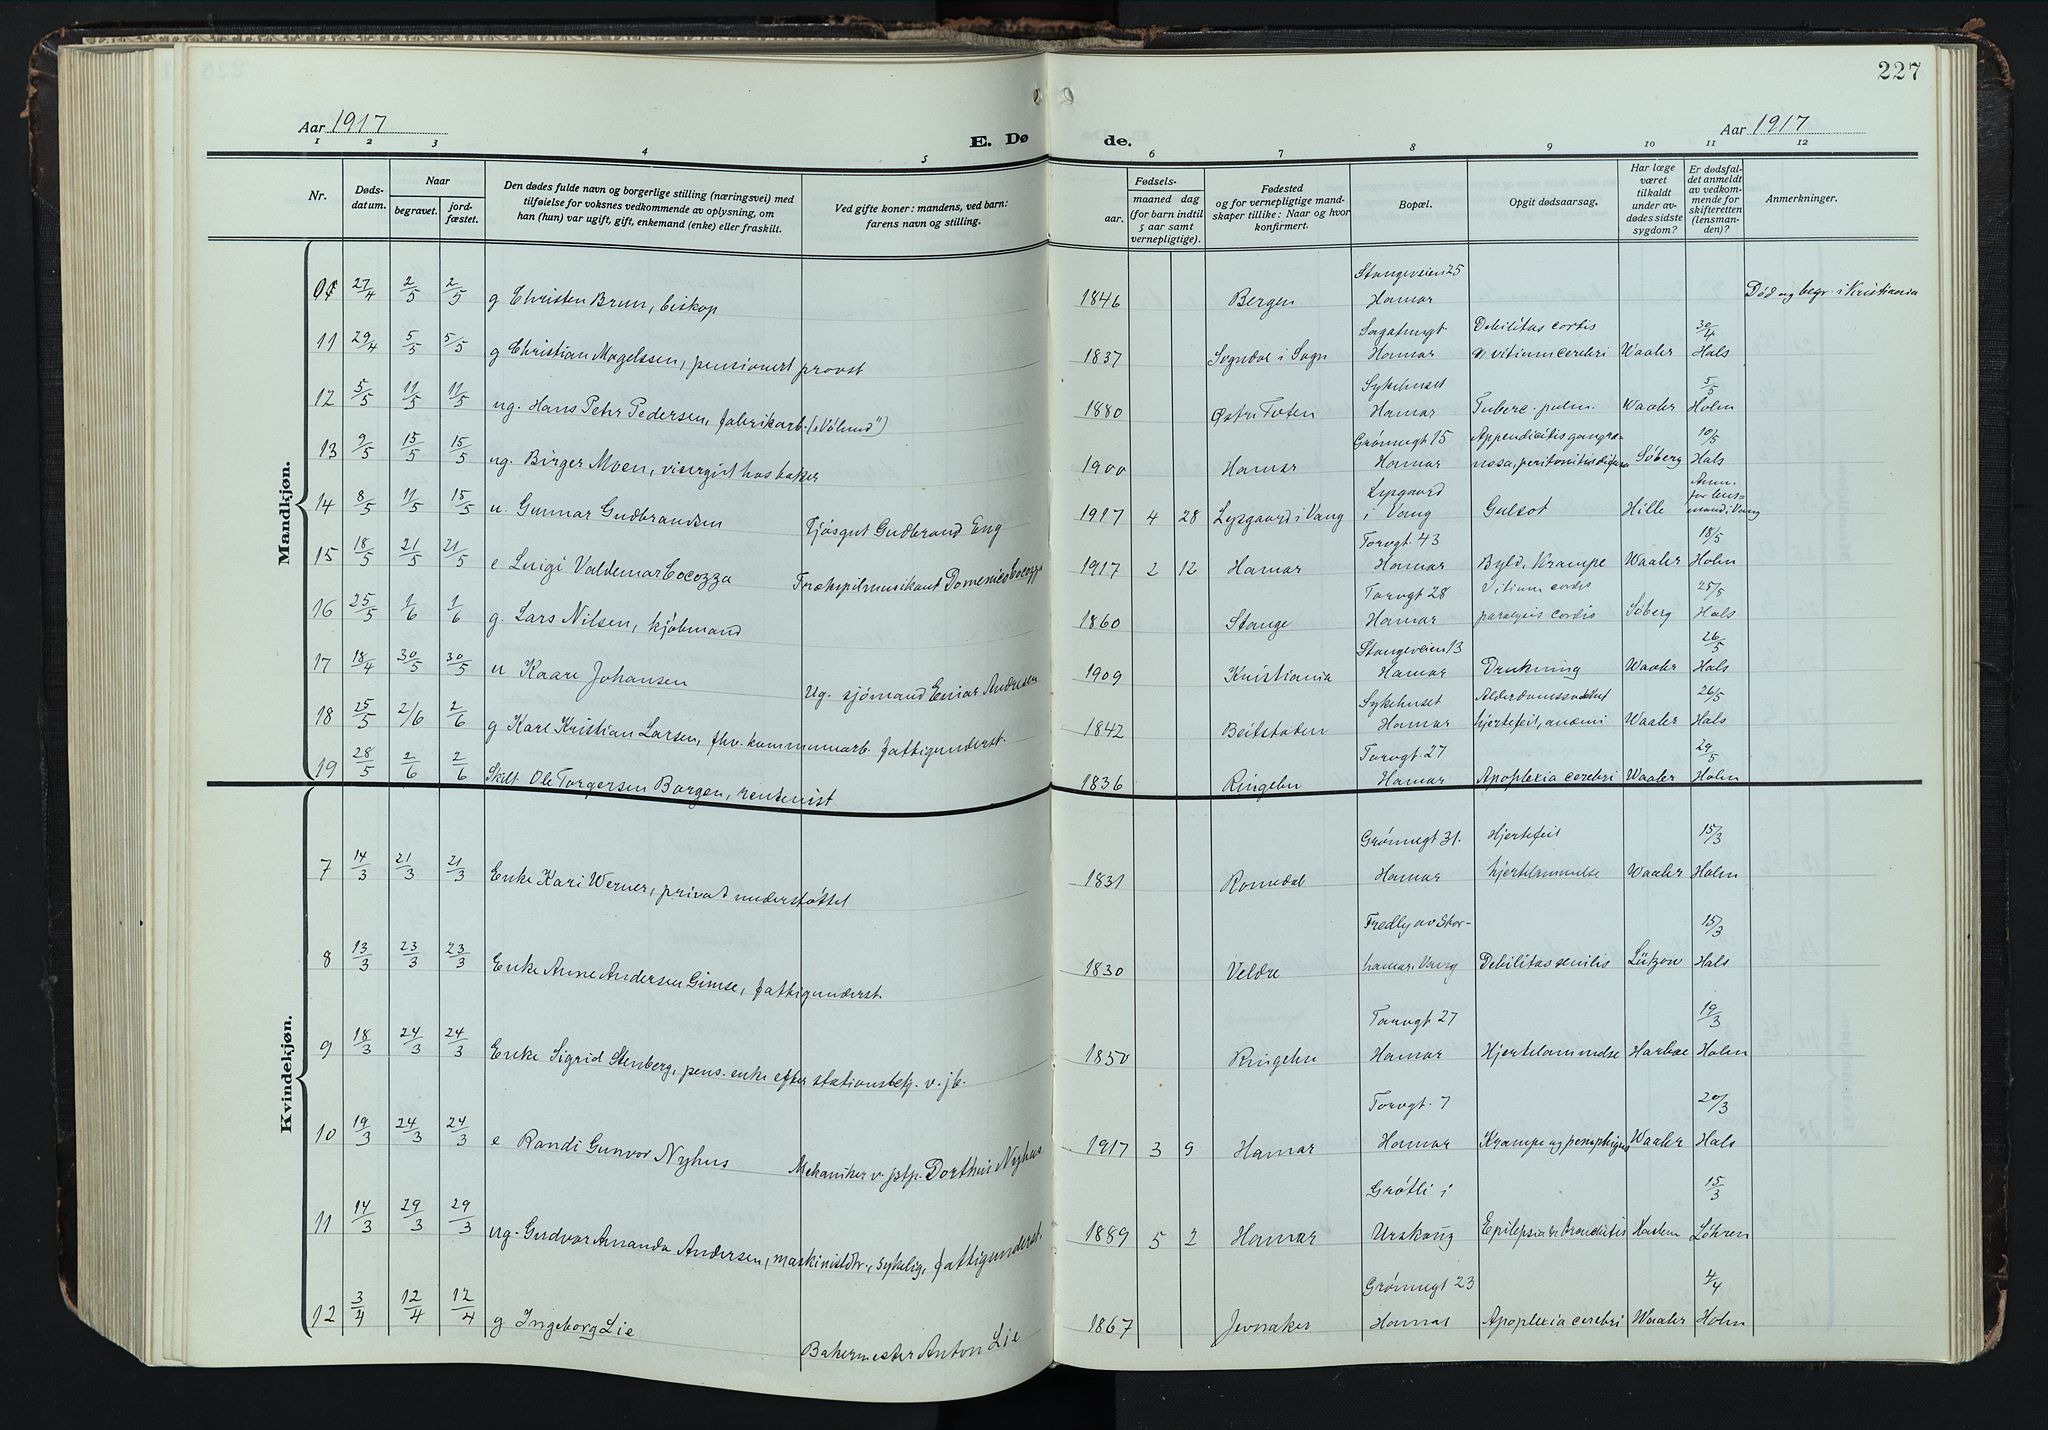 227
Aar 1917
E. Dø de.
Aar 1917
1 2 3 4 5 6 7 8 9 10 11 12
Nr.
Døds-
datum.
Naar
begravet.
jord-
fæstet.
Den dødes fulde navn og borgerlige stilling (næringsvei) med
tilføielse for voksnes vedkommende av oplysning, om
han (hun) var ugift, gift, enkemand (enke) eller fraskilt.
Ved gifte koner: mandens, ved barn:
farens navn og stilling.
Fødsels-
aar. maaned dag
(for barn indtil
5 aar samt
vernepligtige).
Fødested
og for vernepligtige mand-
skaper tillike: Naar og hvor
konfirmert.
Bopæl.
Opgit dødsaarsag.
Har læge
været
tilkaldt
under av-
dødes sidste
sygdom?
Er dødsfal-
det anmeldt
av vedkom-
mende for
skifteretten
(lensman-
den)?
Anmerkninger.
Mandkjøn.
27/4 2/5 2/5 g Christen Brun, biskop 1846 Bergen Stangeveien 25 Hamar Død og begr. i Kristiania
11 29/4 5/5 5/5 g Christian Magelssen, pensionert provst 1837 Sogndal i Sogn Hamar Debilitas cordis vitium cerebri Waaler 30/4 Hals
12 5/5 11/5 11/5 ug. Hans Petr Pedersen, fabrikarb. ("Vølund") 1880 Østre Toten Sykehuset Hamar Tuberc. pulm. Waaler 5/5 Holm
13 9/5 15/5 15/5 ug. Birger Moen, visergut hos baker 1900 Hamar Grønnegt 15 Hamar Appendicitis gangræ-nosa, peritonitis diffusa Søberg 10/5 Hals
14 8/5 11/5 15/5 u. Gunnar Gudbrandsen Fjøsgut Gudbrand Eng 1917 4 28 Lysgaard i Vang Lysgaard i Vang Gulsot Hille Anm. for lens-mand i Vang
15 18/5 21/5 21/5 e Luigi Valdemar Cocozza Trækspilmusikant Domenico Cocozza 1917 2 12 Hamar Torvgt. 43 Hamar Byld, Krampe Waaler 18/5 Holm
16 25/5 1/6 1/6 g. Lars Nilsen, kjøbmand 1860 Stange Torvgt 28 Hamar Vitium cordis paralysis cordis Søberg 25/5 Hals
17 18/4 30/5 30/5 u Kaare Johansen Ug. sjømand Einar Andresen 1909 Kristiania Stangeveien 13 Hamar Drukning Waaler 26/5 Hals
18 25/5 2/6 2/6 g Karl Kristian Larsen, fhv. kommunearb. fattigunderst. 1842 Beitstaden Sykehuset Hamar Alderdomssvakhet hjertefeil, anæmi Waaler 26/5 Hals
19 28/5 2/6 2/6 Skilt Ole Torgersen Borgen, rentenist 1836 Ringebu Torvgt. 27 Hamar Apoplexia cerebri Waaler 29/5 Holm
Kvindekjøn.
7 14/3 21/3 21/3 Enke Kari Werner, privat understøttet 1831 Romedal Grønnegt 31. Hamar Hjertefeil hjertelammelse Waaler 15/3 Holm
8 13/3 23/3 23/3 Enke Anne Andersen Gimse, fattigunderst. 1830 Veldre Fredly av Stor-hamar i Vang Debilitas senilis Lützow 15/3 Hals
9 18/3 24/3 24/3 Enke Sigrid Stenberg, pens. enke efter stationsbetj. v. jb. 1850 Ringebu Torvgt 27 Hamar Hjertelammelse Harboe 19/3 Holm
10 19/3 24/3 24/3 e Randi Gunvor Nyhus Mekaniker v. Dorthus Nyhus 1917 3 9 Hamar Torvgt. 7 Hamar Krampe og pemphigus Waaler 20/3 Hals
11 14/3 29/3 29/3 ug. Gudvor Amanda Andersen, maskinistdtr., sykelig, fattigunderst. 1889 5 2 Hamar Grøtli i Urskoug Epilepsia & Bronchitis Haslem 15/3 Løhren
12 3/4 12/4 12/4 g Ingeborg Lie Bakermester Anton Lie 1867 Jevnaker Grønnegt 23 Hamar Apoplexia cerebri Waaler 4/4 Holm